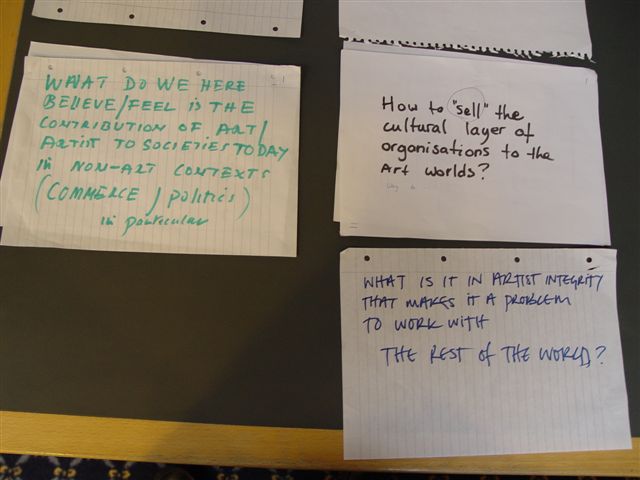 WHAT DO WE HERE
BELIEVE/FEEL IS THE
CONTRIBUTION OF ART/
ARTIST TO SOCIETIES TODAY
in NON-ART CONTEXTS
(COMMERCE / politics)
in particular
How to "sell" the
cultural layer of
organisations to the
Art worlds?
WHAT IS IT IN ARTIST INTEGRITY
THAT MAKES IT A PROBLEM
TO WORK WITH
THE REST OF THE WORLD?